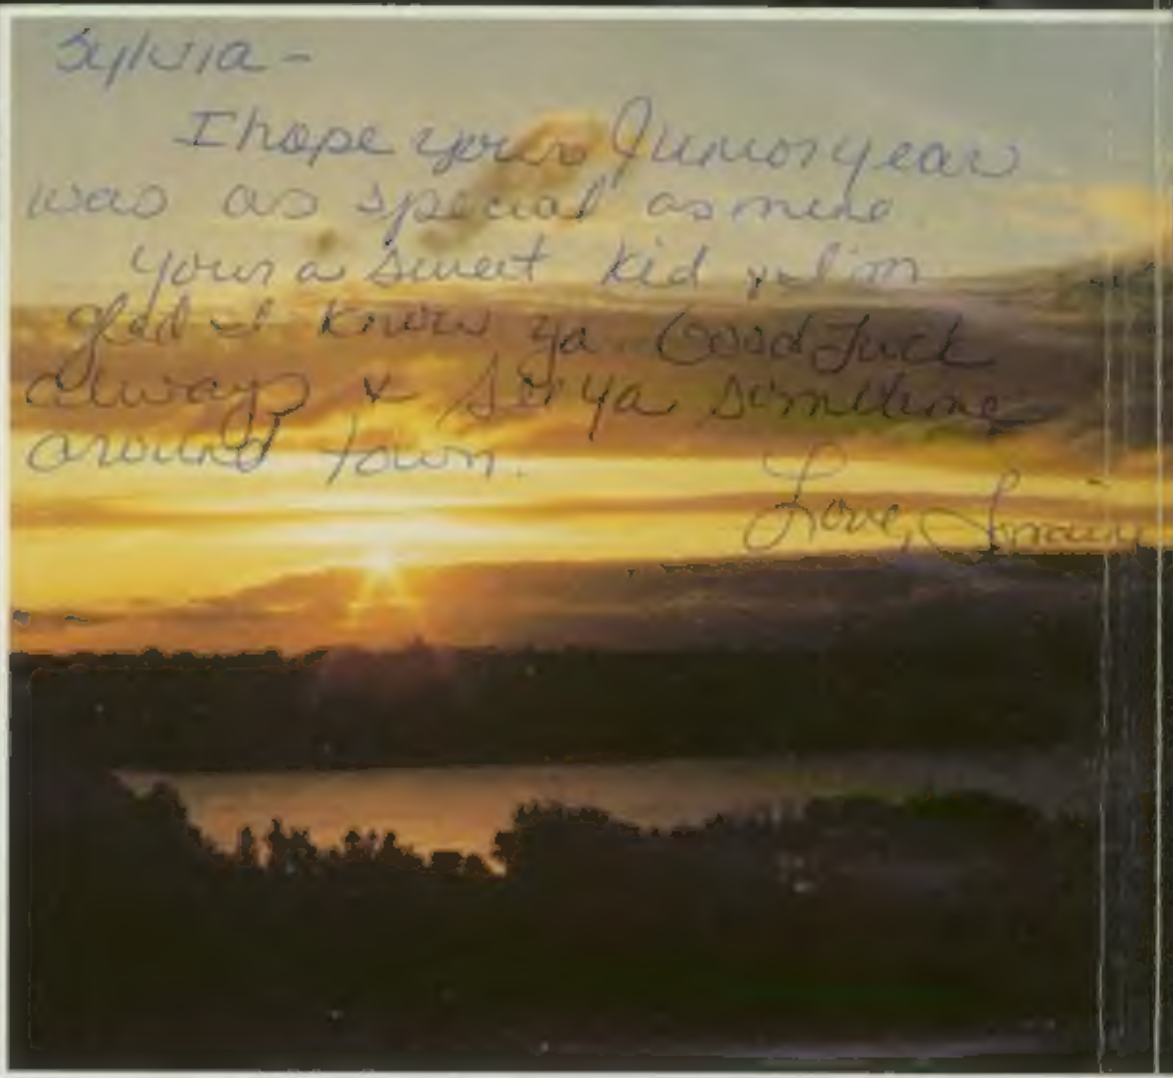 Sylvia -
I hope your Junior year
was as special as mine
your a sweet kid & I'm
glad I know ya. Good Luck
always & see ya sometime
around town.
Love,